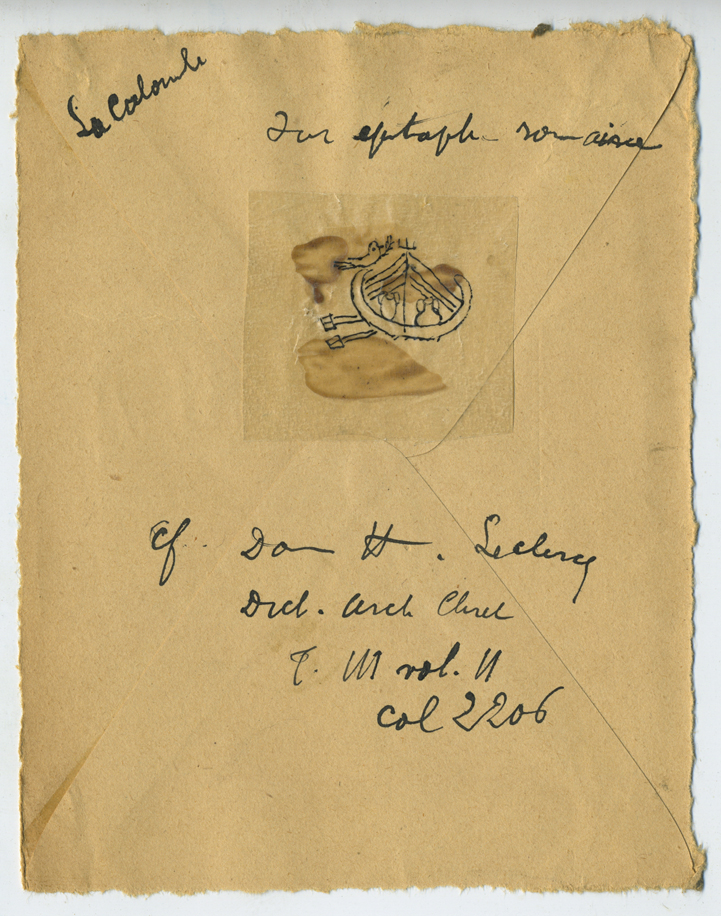 La Colombe
Sur epitaphe romaine
cf. Dom H. Leclercq
Dict. Arch Chret
T. III vol. II
col 2206